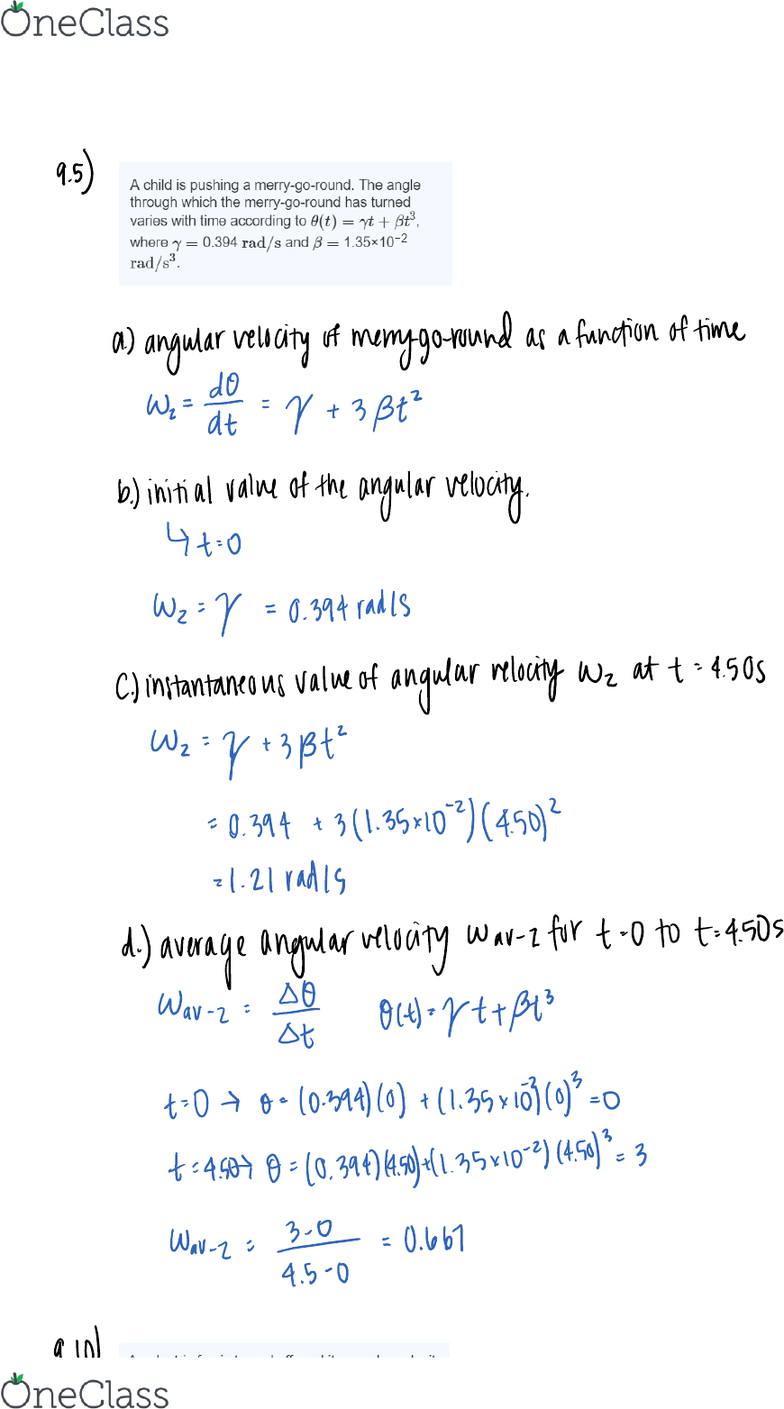 OneClass
9.5)
A child is pushing a merry-go-round. The angle
through which the merry-go-round has turned
varies with time according to θ(t) = γt + βt³,
where γ = 0.394 rad/s and β = 1.35×10⁻²
rad/s³.
a) angular velocity of merry-go-round as a function of time
ω_z = dθ/dt = γ + 3βt²
b.) initial value of the angular velocity.
↳ t=0
ω_z = γ = 0.394 rad/s
c.) instantaneous value of angular velocity ω_z at t = 4.50s
ω_z = γ + 3βt²
= 0.394 + 3(1.35×10⁻²)(4.50)²
= 1.21 rad/s
d.) average angular velocity ω_av-z for t=0 to t=4.50s
ω_av-z = Δθ/Δt θ(t) = γt + βt³
t=0 → θ = (0.394)(0) + (1.35×10⁻²)(0)³ = 0
t=4.50 → θ = (0.394)(4.50)+(1.35×10⁻²)(4.50)³ = 3
ω_av-z = 3-0/4.5-0 = 0.667
9.10)
OneClass